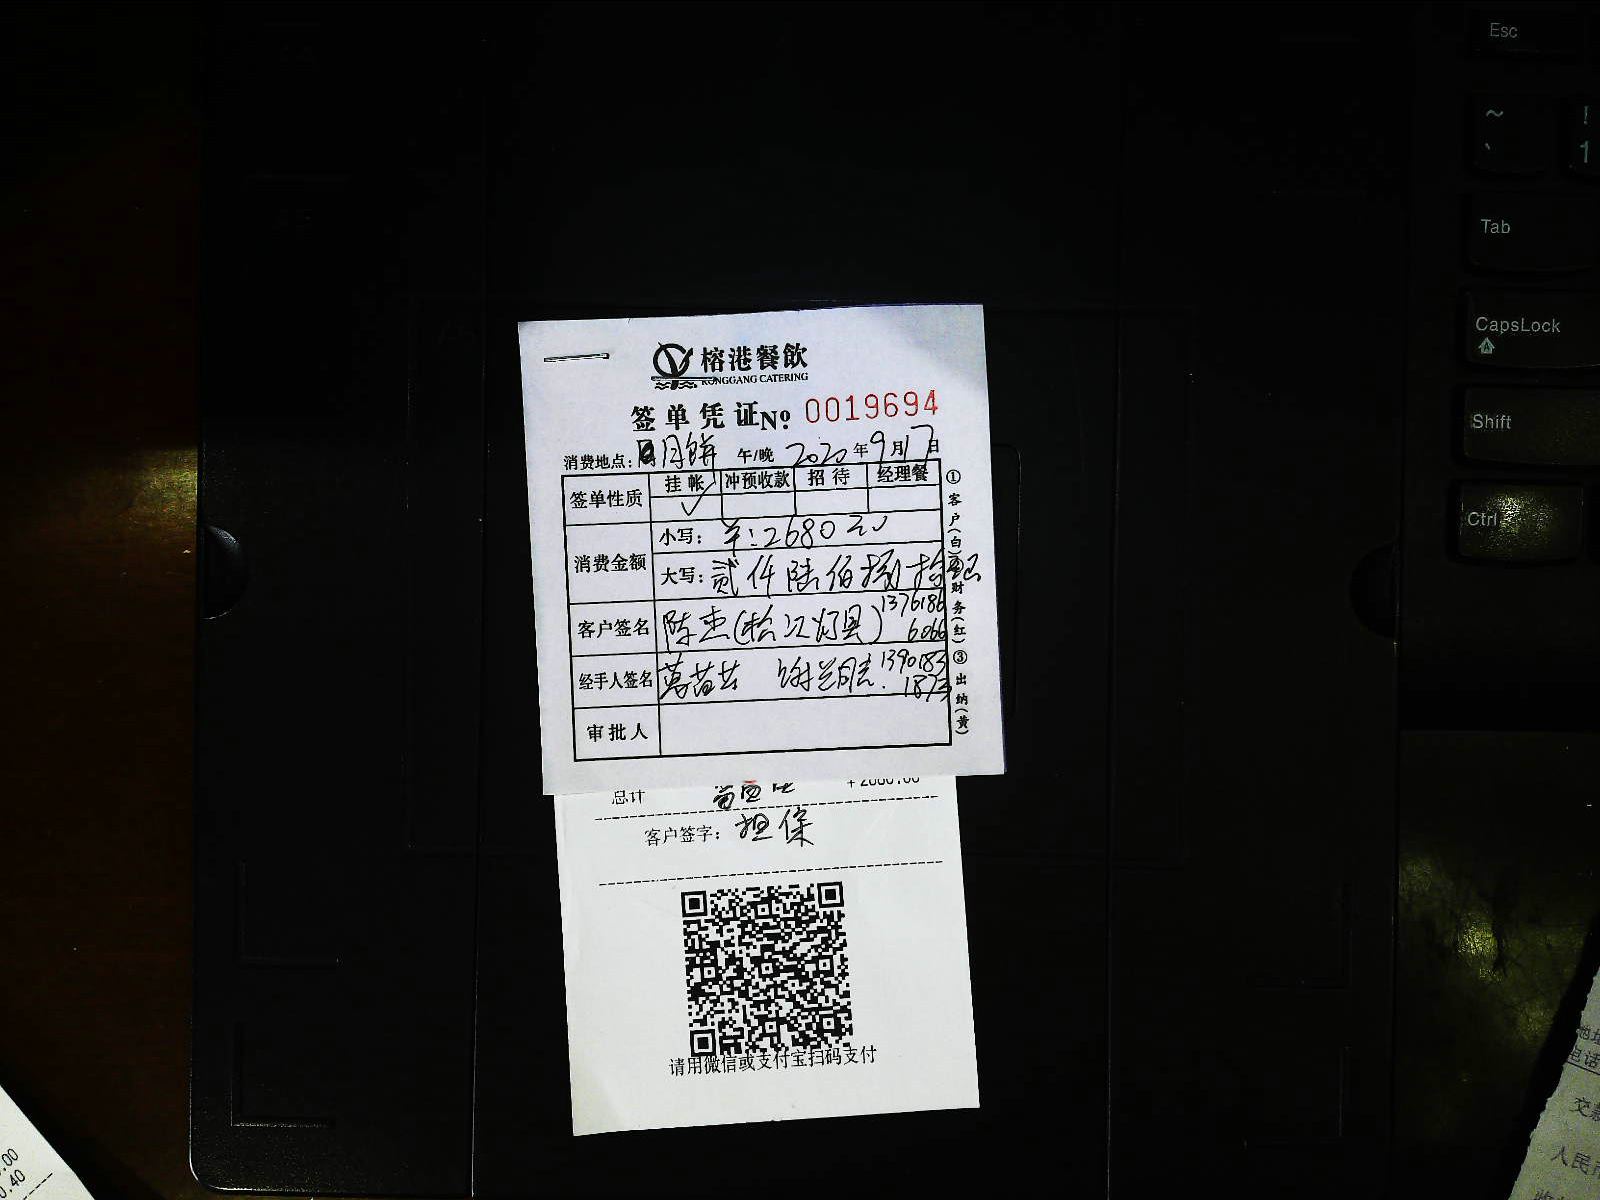 榕港餐飲
RONGGANG CATERING
签单凭证 №: 0019694
消费地点: 月饼 午/晚 2020年9月17日
签单性质 挂帐 冲预收款 招待 经理餐
✓
消费金额 小写: ¥:2680元
大写: 贰仟陆佰捌拾元
客户签名 陈杰(松江灯具) 1376186
6066
经手人签名 1390183
1873
审批人
①客户(白) 财务(红) ③出纳(黄)
总计 +2680.00
客户签字: 担保
请用微信或支付宝扫码支付
Esc
~
`
!
1
Tab
CapsLock
A
Shift
Ctrl
.00
0.40
电话
交款
人民币